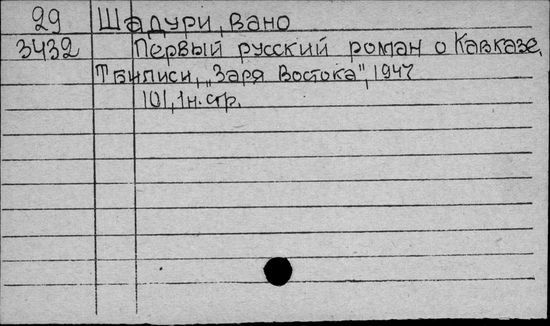 29 Шадури, Вано
3432 Первый русский роман о Кавказе.
Тбилиси, „Заря Востока", 1947
101, 1 н. стр.